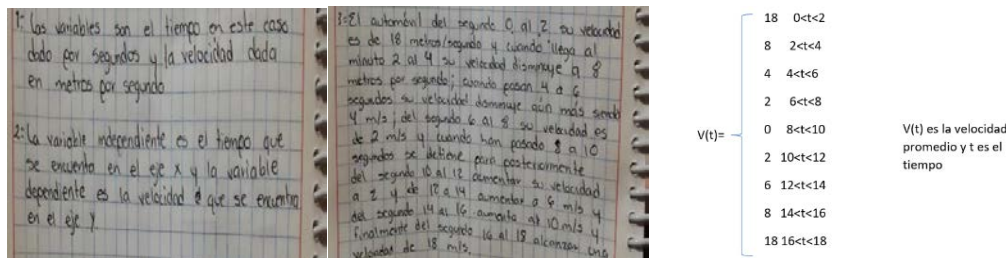 1: Las variables son el tiempo en este caso
dado por segundos y la velocidad dada
en metros por segundo
2: La variable independiente es el tiempo que
se encuentra en el eje x y la variable
dependiente es la velocidad que se encuentra
en el eje y.
3: El automóvil del segundo 0 al 2 su velocidad
es de 18 metros/segundo y cuando llega al
minuto 2 al 4 su velocidad disminuye a 8
metros por segundo; cuando pasan 4 a 6
segundos su velocidad disminuye aún más siendo
4 m/s; del segundo 6 al 8 su velocidad es
de 2 m/s y cuando han pasado 8 a 10
segundos se detiene para posteriormente
del segundo 10 al 12 aumentar su velocidad
a 2 y de 12 a 14 aumentar a 6 m/s y
del segundo 14 al 16 aumenta a 10 m/s y
finalmente del segundo 16 al 18 alcanzar una
velocidad de 18 m/s.
V(t)=
18 0<t<2
8 2<t<4
4 4<t<6
2 6<t<8
0 8<t<10
2 10<t<12
6 12<t<14
8 14<t<16
18 16<t<18
V(t) es la velocidad
promedio y t es el
tiempo